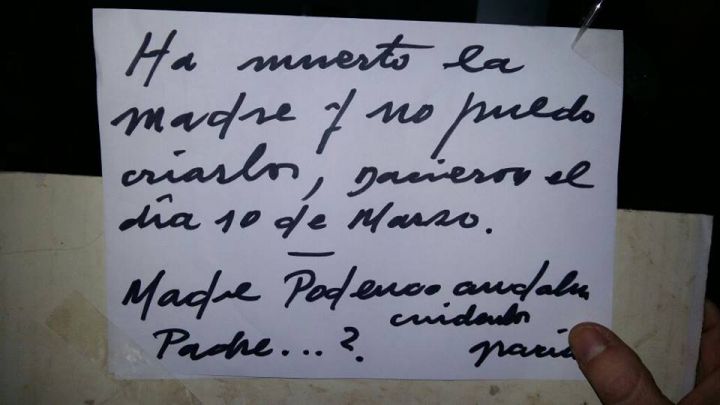 Ha muerto la
madre y no puedo
criarlos, nacieron el
día 10 de Marzo.
Madre Podenco andaluz
cuidarlos
Padre...?.